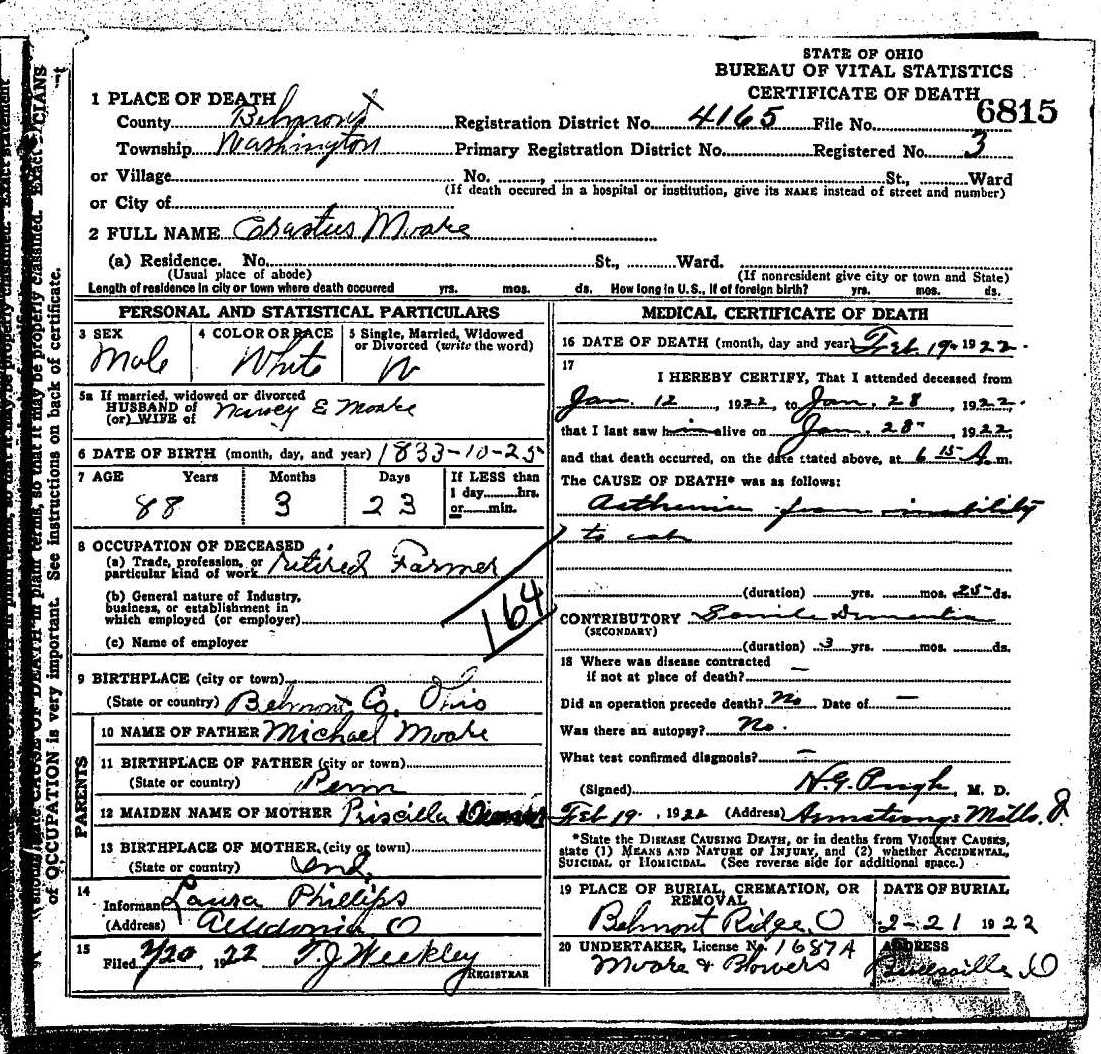 STATE OF OHIO
BUREAU OF VITAL STATISTICS
CERTIFICATE OF DEATH
6815
1 PLACE OF DEATH
County Belmont Registration District No. 4165 File No.
Township Washington Primary Registration District No. Registered No. 3
or Village No. , St., Ward
(If death occured in a hospital or institution, give its NAME instead of street and number)
or City of
2 FULL NAME Erastus Moore
(a) Residence. No. St., Ward.
(Usual place of abode) (If nonresident give city or town and State)
Length of residence in city or town where death occurred yrs. mos. ds. How long in U.S., if of foreign birth? yrs. mos. ds.
PERSONAL AND STATISTICAL PARTICULARS
3 SEX 4 COLOR OR RACE 5 Single, Married, Widowed or Divorced (write the word)
Male White W
5a If married, widowed or divorced
HUSBAND of
(or) WIFE of Nancy E Moore
6 DATE OF BIRTH (month, day, and year) 1833-10-25
7 AGE Years Months Days If LESS than
1 day hrs.
or min.
88 3 23
8 OCCUPATION OF DECEASED
(a) Trade, profession, or
particular kind of work retired Farmer
(b) General nature of Industry,
business, or establishment in
which employed (or employer)
(c) Name of employer
164
9 BIRTHPLACE (city or town)
(State or country) Belmont Co. Ohio
PARENTS
10 NAME OF FATHER Michael Moore
11 BIRTHPLACE OF FATHER (city or town)
(State or country) Penn
12 MAIDEN NAME OF MOTHER Priscilla
13 BIRTHPLACE OF MOTHER (city or town)
(State or country)
14
Informant Laura Phillips
(Address) O
15
Filed 2/20, 1922 T. J Weekley
REGISTRAR
MEDICAL CERTIFICATE OF DEATH
16 DATE OF DEATH (month, day and year) Feb. 19. 1922.
17
I HEREBY CERTIFY, That I attended deceased from
Jan. 12, 1922, to Jan. 28, 1922.
that I last saw him alive on Jan. 28, 1922,
and that death occurred, on the date stated above, at 6 15 A.m.
The CAUSE OF DEATH* was as follows:
Asthenia from inability
to eat
(duration) yrs. mos. 25 ds.
CONTRIBUTORY Senile Dementia
(SECONDARY)
(duration) 3 yrs. mos. ds.
18 Where was disease contracted
if not at place of death? —
Did an operation precede death? No Date of —
Was there an autopsy? No.
What test confirmed diagnosis? —
(Signed) H. G. Pugh, M. D.
Feb 19, 1922 (Address) Armstrongs Mills, O
*State the DISEASE CAUSING DEATH, or in deaths from VIOLENT CAUSES,
state (1) MEANS AND NATURE OF INJURY, and (2) whether ACCIDENTAL,
SUICIDAL or HOMICIDAL. (See reverse side for additional space.)
19 PLACE OF BURIAL, CREMATION, OR
REMOVAL DATE OF BURIAL
Belmont Ridge, O 2-21 1922
20 UNDERTAKER, License No. 1687A ADDRESS
Moore & Bowers O
of OCCUPATION is very important. See instructions on back of certificate.
CAUSE OF DEATH in plain terms, so that it may be properly classified. Exact